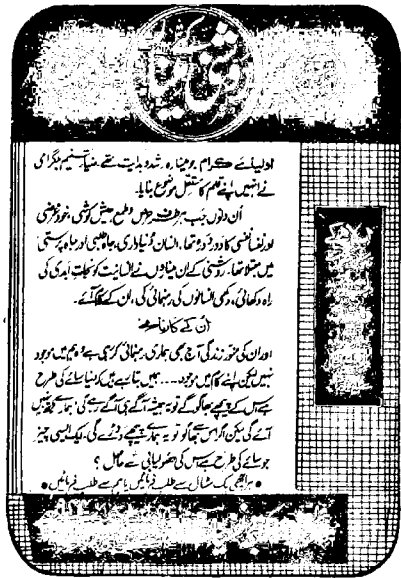 روشنی کے مینار
اولیائے کرام جو مینارہ رشد و ہدایت تھے، ضیاء تسنیم بلگرامی
نے انہیں اپنے قلم کا مستقل موضوع بنایا۔
اُن دنوں جب ہر طرف حرص و طمع، عیش کوشی، خود غرضی
اور نفسانفسی کا دور دورہ تھا، انسان دُنیاداری، جاہ طلبی اور جاہ پرستی میں
مبتلا تھا۔ روشنی کے ان میناروں نے انسانیت کو نجاتِ ابدی کی
راہ دکھائی، دکھی انسانوں کی رہنمائی کی، ان کے کام آئے۔
اُن کے کارنامے
اور ان کی منور زندگی آج بھی ہماری رہنمائی کر رہی ہے وہ ہم میں موجود
نہیں لیکن اپنے کام میں موجود .... ہمیں بتا رہے ہیں کہ دنیا سائے کی طرح
ہے اس کے پیچھے بھاگو گے تو یہ ہمیشہ آگے ہی آگے رہے گی ہمارے ہاتھ نہیں
آئے گی لیکن اگر اس سے بھاگو تو یہ ہمارے پیچھے دوڑے گی، ایک ایسی چیز
جو سائے کی طرح ہے اس کی حصولیابی سے حاصل ؟
• ہر اچھے بک سٹال سے طلب فرمائیں یا ہم سے طلب فرمائیں •